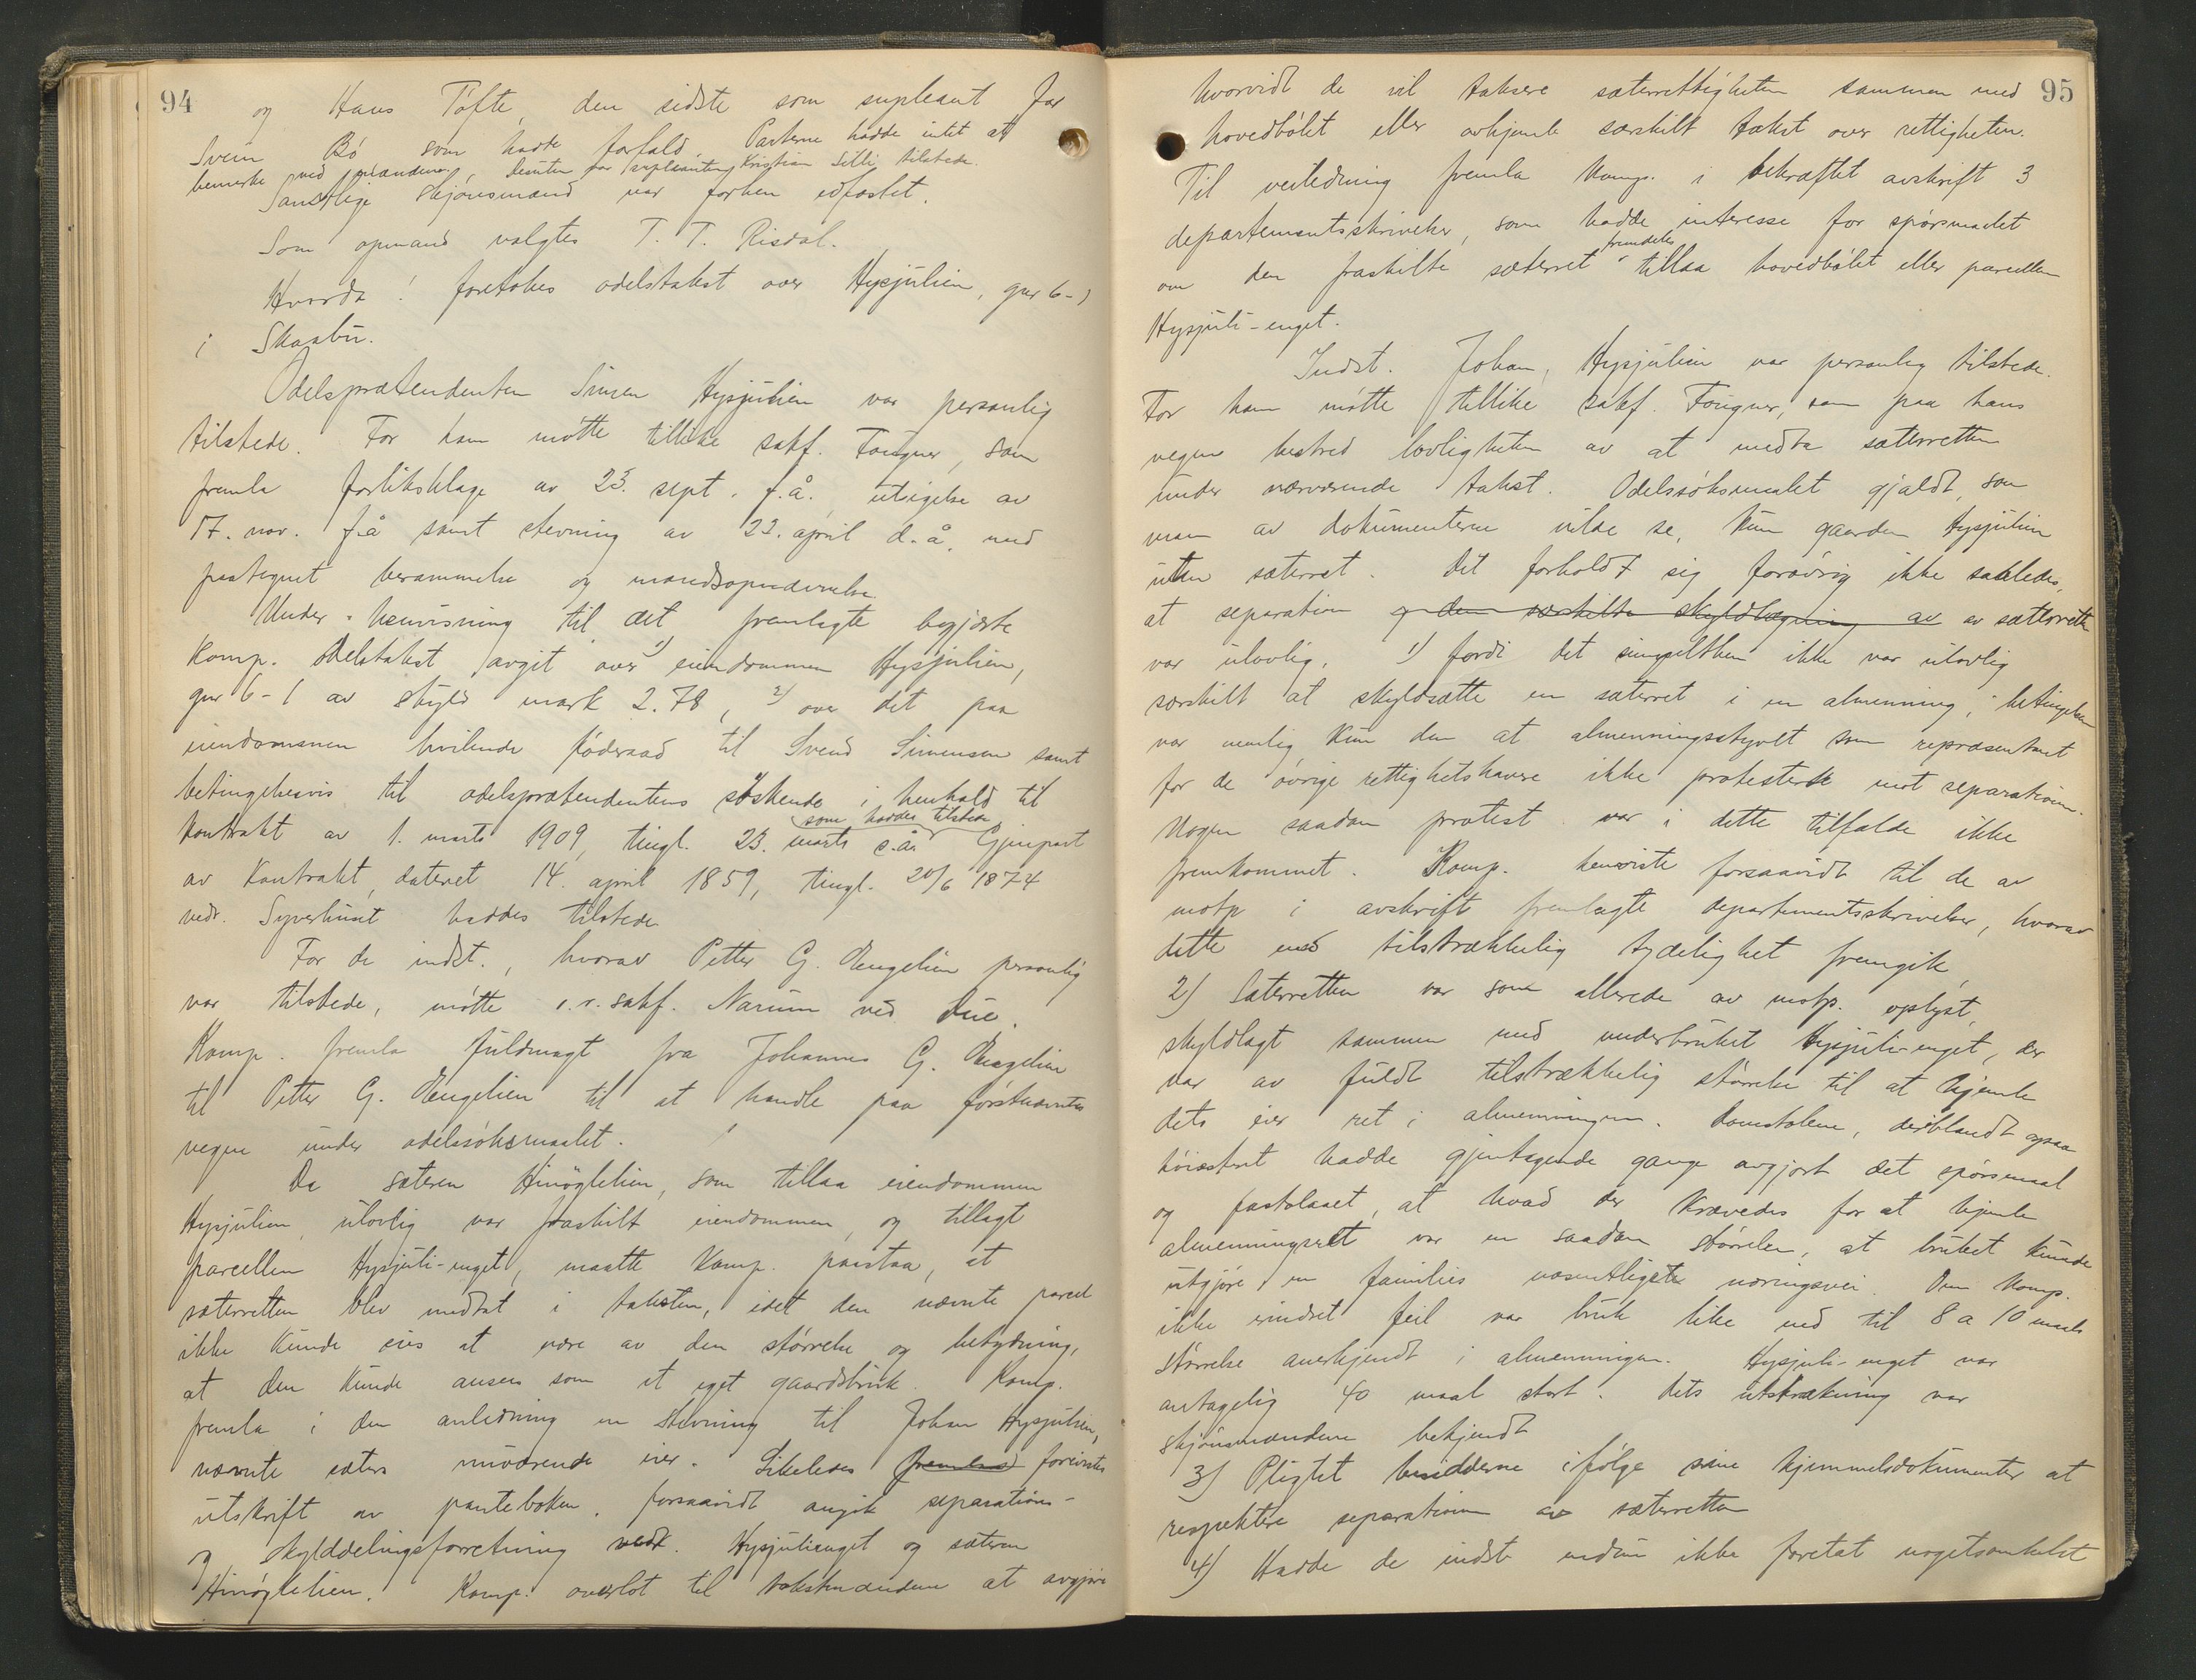 94
og Hans Tøfte, den sidste som supleant for
Svein Bø som hadde forfald. Parterne hadde intet at
bemerke ved mændene. Desuten var supleanten Kristian Silli tilstede.
Samtlige skjønsmænd var forhen edfæstet.
Som opmand valgtes T. T. Risdal.
Hvorda! foretokes odelstakst over Hysjulien, gnr 6-1
i Skaabu.
Odelsprætendenten Simen Hysjulien var personlig
tilstede. For ham møtte tillike sakf. Fougner, som
fremla forliksklage av 23. sept. f.å. utsigelse av
17. nov. f.å samt stevning av 22. april d.å. med
paategnet berammelse og mandsopnævnelse.
Under henvisning til det fremlagte begjærte
Komp. odelstakst avgit over 1) eiendommen Hysjulien,
gnr 6-1 av skyld mark 2.78, 2) over det paa
eiendommen hvilende føderaad til Svend Simensen samt
betingelsesvis til odelsprætendentens søskende i henhold til
kontrakt av 1. marts 1909, tingl. 23. marts s.år som haddes tilstede. Gjenpart
av kontrakt, dateret 14. april 1859, tingl. 20/6 1874
vedr. Syverhuset haddes tilstede
For de indst., hvorav Petter G. Engelien personlig
var tilstede, møtte o.r.sakf. Narum ved Due.
Komp. fremla fuldmagt fra Johannes G. Engelien
til Petter G. Engelien til at handle paa førstnævntes
vegne under odelssøksmaalet.
Da sæteren Hinøglelien, som tillaa eiendommen
Hysjulien, ulovlig var fraskilt eiendommen, og tillagt
parcellen Hysjuli-enget, maatte komp. paastaa, at
sæterretten blev medtat i taksten, idet den nævnte parcel
ikke kunde sies at være av den størrelse og betydning,
at den kunde ansees som et eget gaardsbruk. Komp.
fremla i den anledning en stevning til Johan Hysjulien,
nævnte sæters nuværende eier. Likeledes fremlas foreviste
utskrift av panteboken, forsaavidt angik separations-
og skylddelingsforretning vedr. Hysjulienget og sæteren
Hinøglelien. Komp. overlot til takstmændene at avgjøre
95
hvorvidt de vil taksere sæterrettigheten sammen med
hovedbølet eller avhjemle særskilt takst over rettigheten.
Til veiledning fremla komp. i bekræftet avskrift 3
departementsskrivelser, som hadde interesse for spørsmaalet
om den fraskilte sæterret fremdeles tillaa hovedbølet eller parcellen
Hysjuli-enget.
Indst. Johan Hysjulien var personlig tilstede.
For ham møtte tillike sakf. Fougner, som paa hans
vegne bestred lovligheten av at medta sæterretten
under nærværende takst. Odelssøksmaalet gjaldt, som
man av dokumenterne vilde se, kun gaarden Hysjulien
uten sæterret. Det forholdt sig forøvrig ikke saaledes,
at separation og den særskilte skyldlægning av av sæterretten
var ulovlig. 1) fordi det simpelthen ikke var ulovlig
særskilt at skyldsætte en sæterret i en almenning; betingelsen
var nemlig kun den at almenningsstyret som repræsentant
for de øvrige rettighetshavere ikke protesterte mot separationen.
Nogen saadan protest var i dette tilfælde ikke
fremkommet. Komp. henviste forsaavidt til de av
motp i avskrift fremlagte departementsskrivelser, hvorav
dette med tilstrækkelig tydelighet fremgik,
2) Sæterretten var som allerede av motp. oplyst,
skyldlagt sammen med underbruket Hysjuli-enget, der
var av fuldt tilstrækkelig størrelse til at hjemle
dets eier ret i almenningen. Domstolene, deriblandt ogsaa
høiesteret hadde gjentagende gange avgjort det spørsmaal
og fastslaaet, at hvad der krævedes for at hjemle
almenningsret var en saadan størrelse, at bruket kunde
utgjøre en families væsentligste næringsvei. Om komp.
ikke erindret feil var bruk like ned til 8 a 10 maals
størrelse anerkjendt i almenningen. Hysjuli-enget var
antagelig 40 maal stort. Dets utstrækning var
skjønsmændene bekjendt
3) Pligtet besidderne ifølge sine hjemmelsdokumenter at
respektere separationen av sæterretten
4) Hadde de indst endnu ikke foretat nogetsomhelst